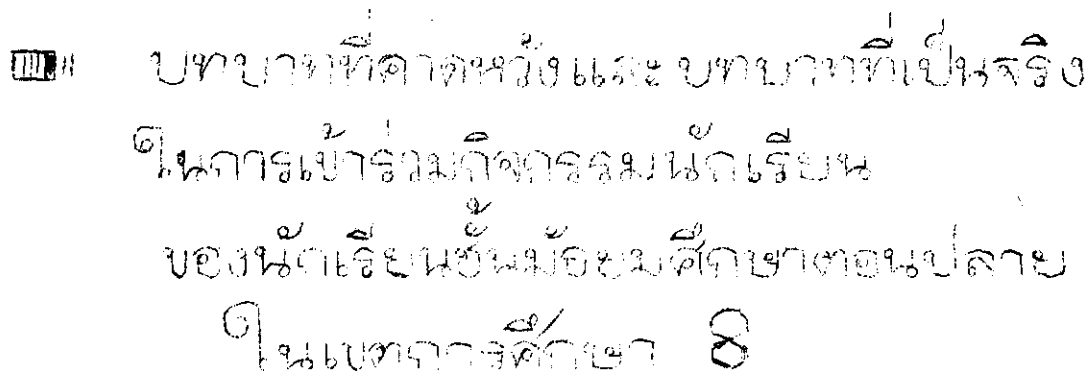 บทบาทที่คาดหวังและบทบาทที่เป็นจริง
ในการเข้าร่วมกิจกรรมนักเรียน
ของนักเรียนชั้นมัธยมศึกษาตอนปลาย
ในเขตการศึกษา 8